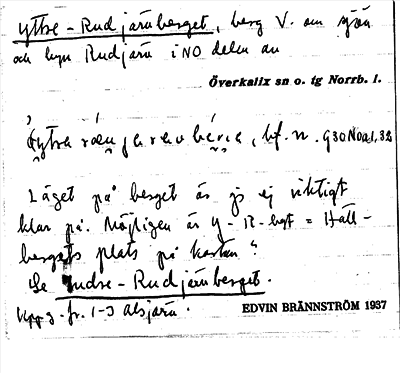 yttre-Rudjärnberget, berg V. om sjön
och byn Rudjärn i NO delen av
Överkalix sn o. tg Norrb. l.
Läget på berget är jg ej riktigt
klar på. Möjligen är Y-R-bgt = Häll-
bergets plats på kartan?
Se Indre-Rudjärnberget.
Uppg. fr. 1-3 Alsjärn.
EDVIN BRÄNNSTRÖM 1937